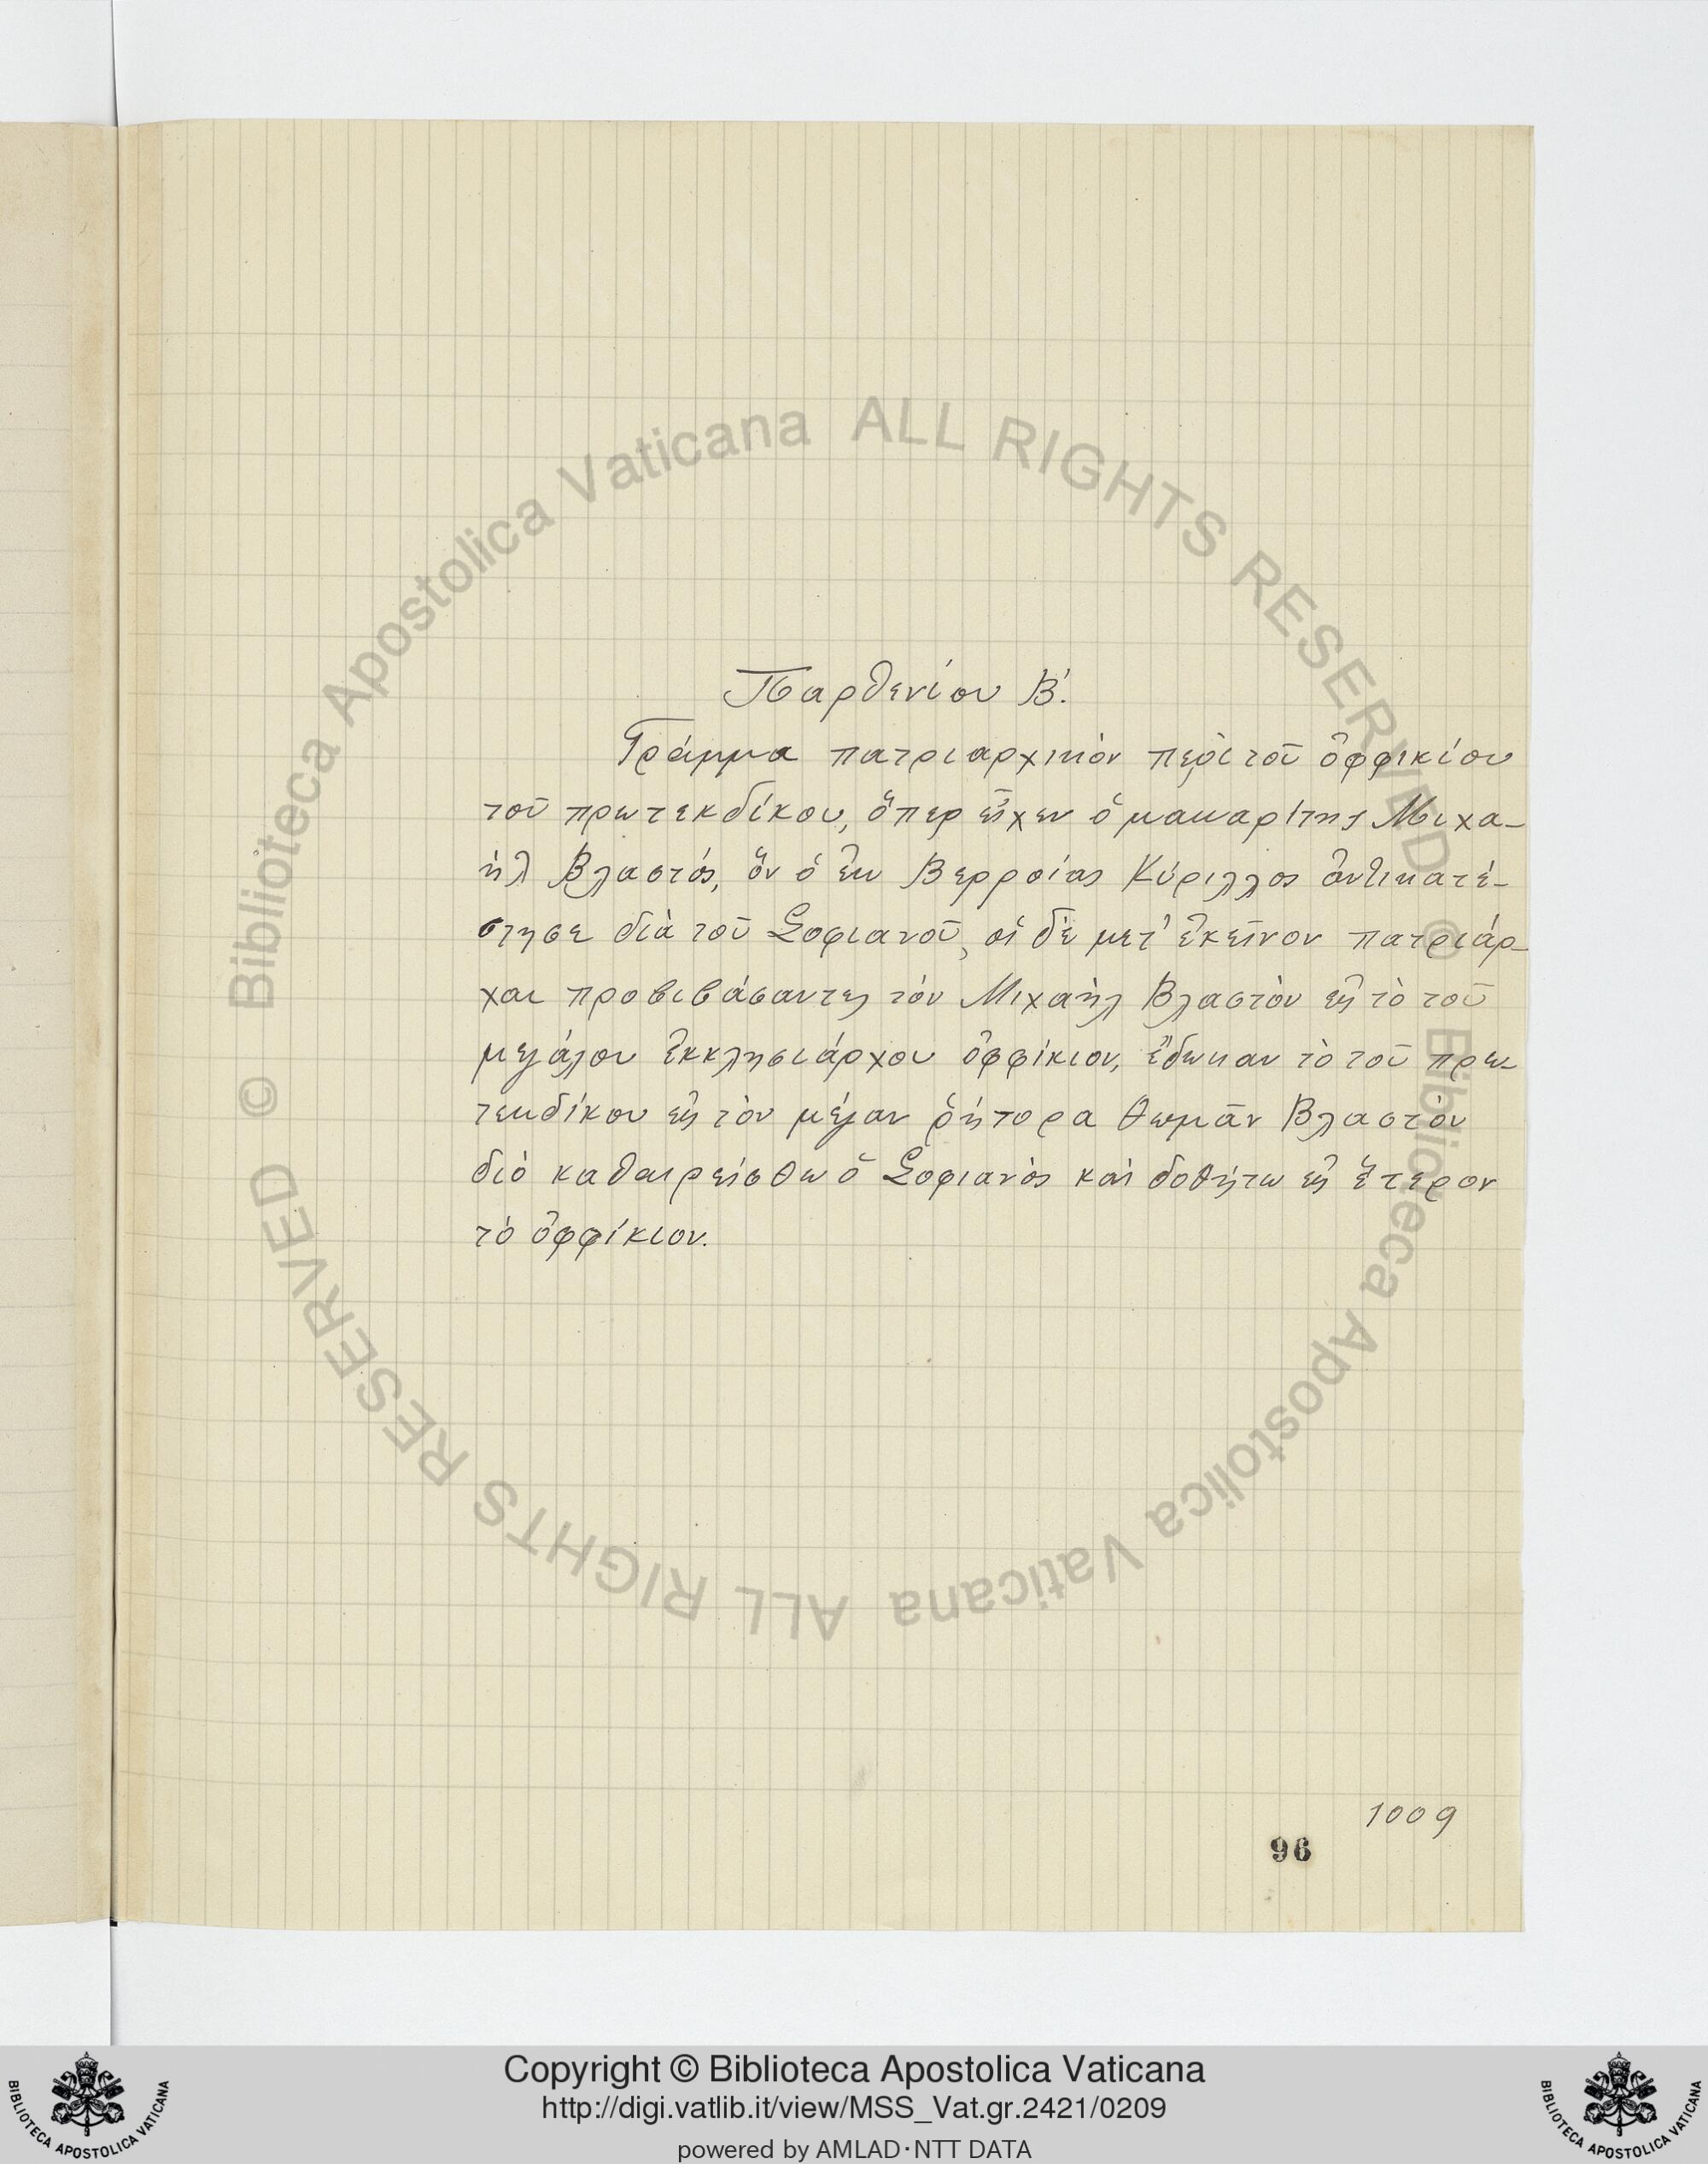 Παρθενίου Β΄.
Γράμμα πατριαρχικὸν περὶ τοῦ ὀφφικίου
τοῦ πρωτεκδίκου, ὅπερ εἶχεν ὁ μακαρίτης Μιχα-
ὴλ Βλαστός, ὃν ὁ ἐκ Βερροίας Κύριλλος ἀντικατέ-
στησε διὰ τοῦ Σοφιανοῦ, οἱ δὲ μετ' ἐκεῖνον πατριάρ-
χαι προβιβάσαντες τὸν Μιχαὴλ Βλαστὸν εἰς τὸ τοῦ
μεγάλου ἐκκλησιάρχου ὀφφίκιον, ἔδωκαν τὸ τοῦ πρω-
τεκδίκου εἰς τὸν μέγαν ῥήτορα Θωμᾶν Βλαστὸν
διὸ καθαιρείσθω ὁ Σοφιανὸς καὶ δοθήτω εἰς ἕτερον
τὸ ὀφφίκιον.
1009
96
© Biblioteca Apostolica Vaticana ALL RIGHTS RESERVED
© Biblioteca Apostolica Vaticana ALL RIGHTS RESERVED
Copyright © Biblioteca Apostolica Vaticana
http://digi.vatlib.it/view/MSS_Vat.gr.2421/0209
powered by AMLAD·NTT DATA
BIBLIOTECA APOSTOLICA VATICANA
BIBLIOTECA APOSTOLICA VATICANA